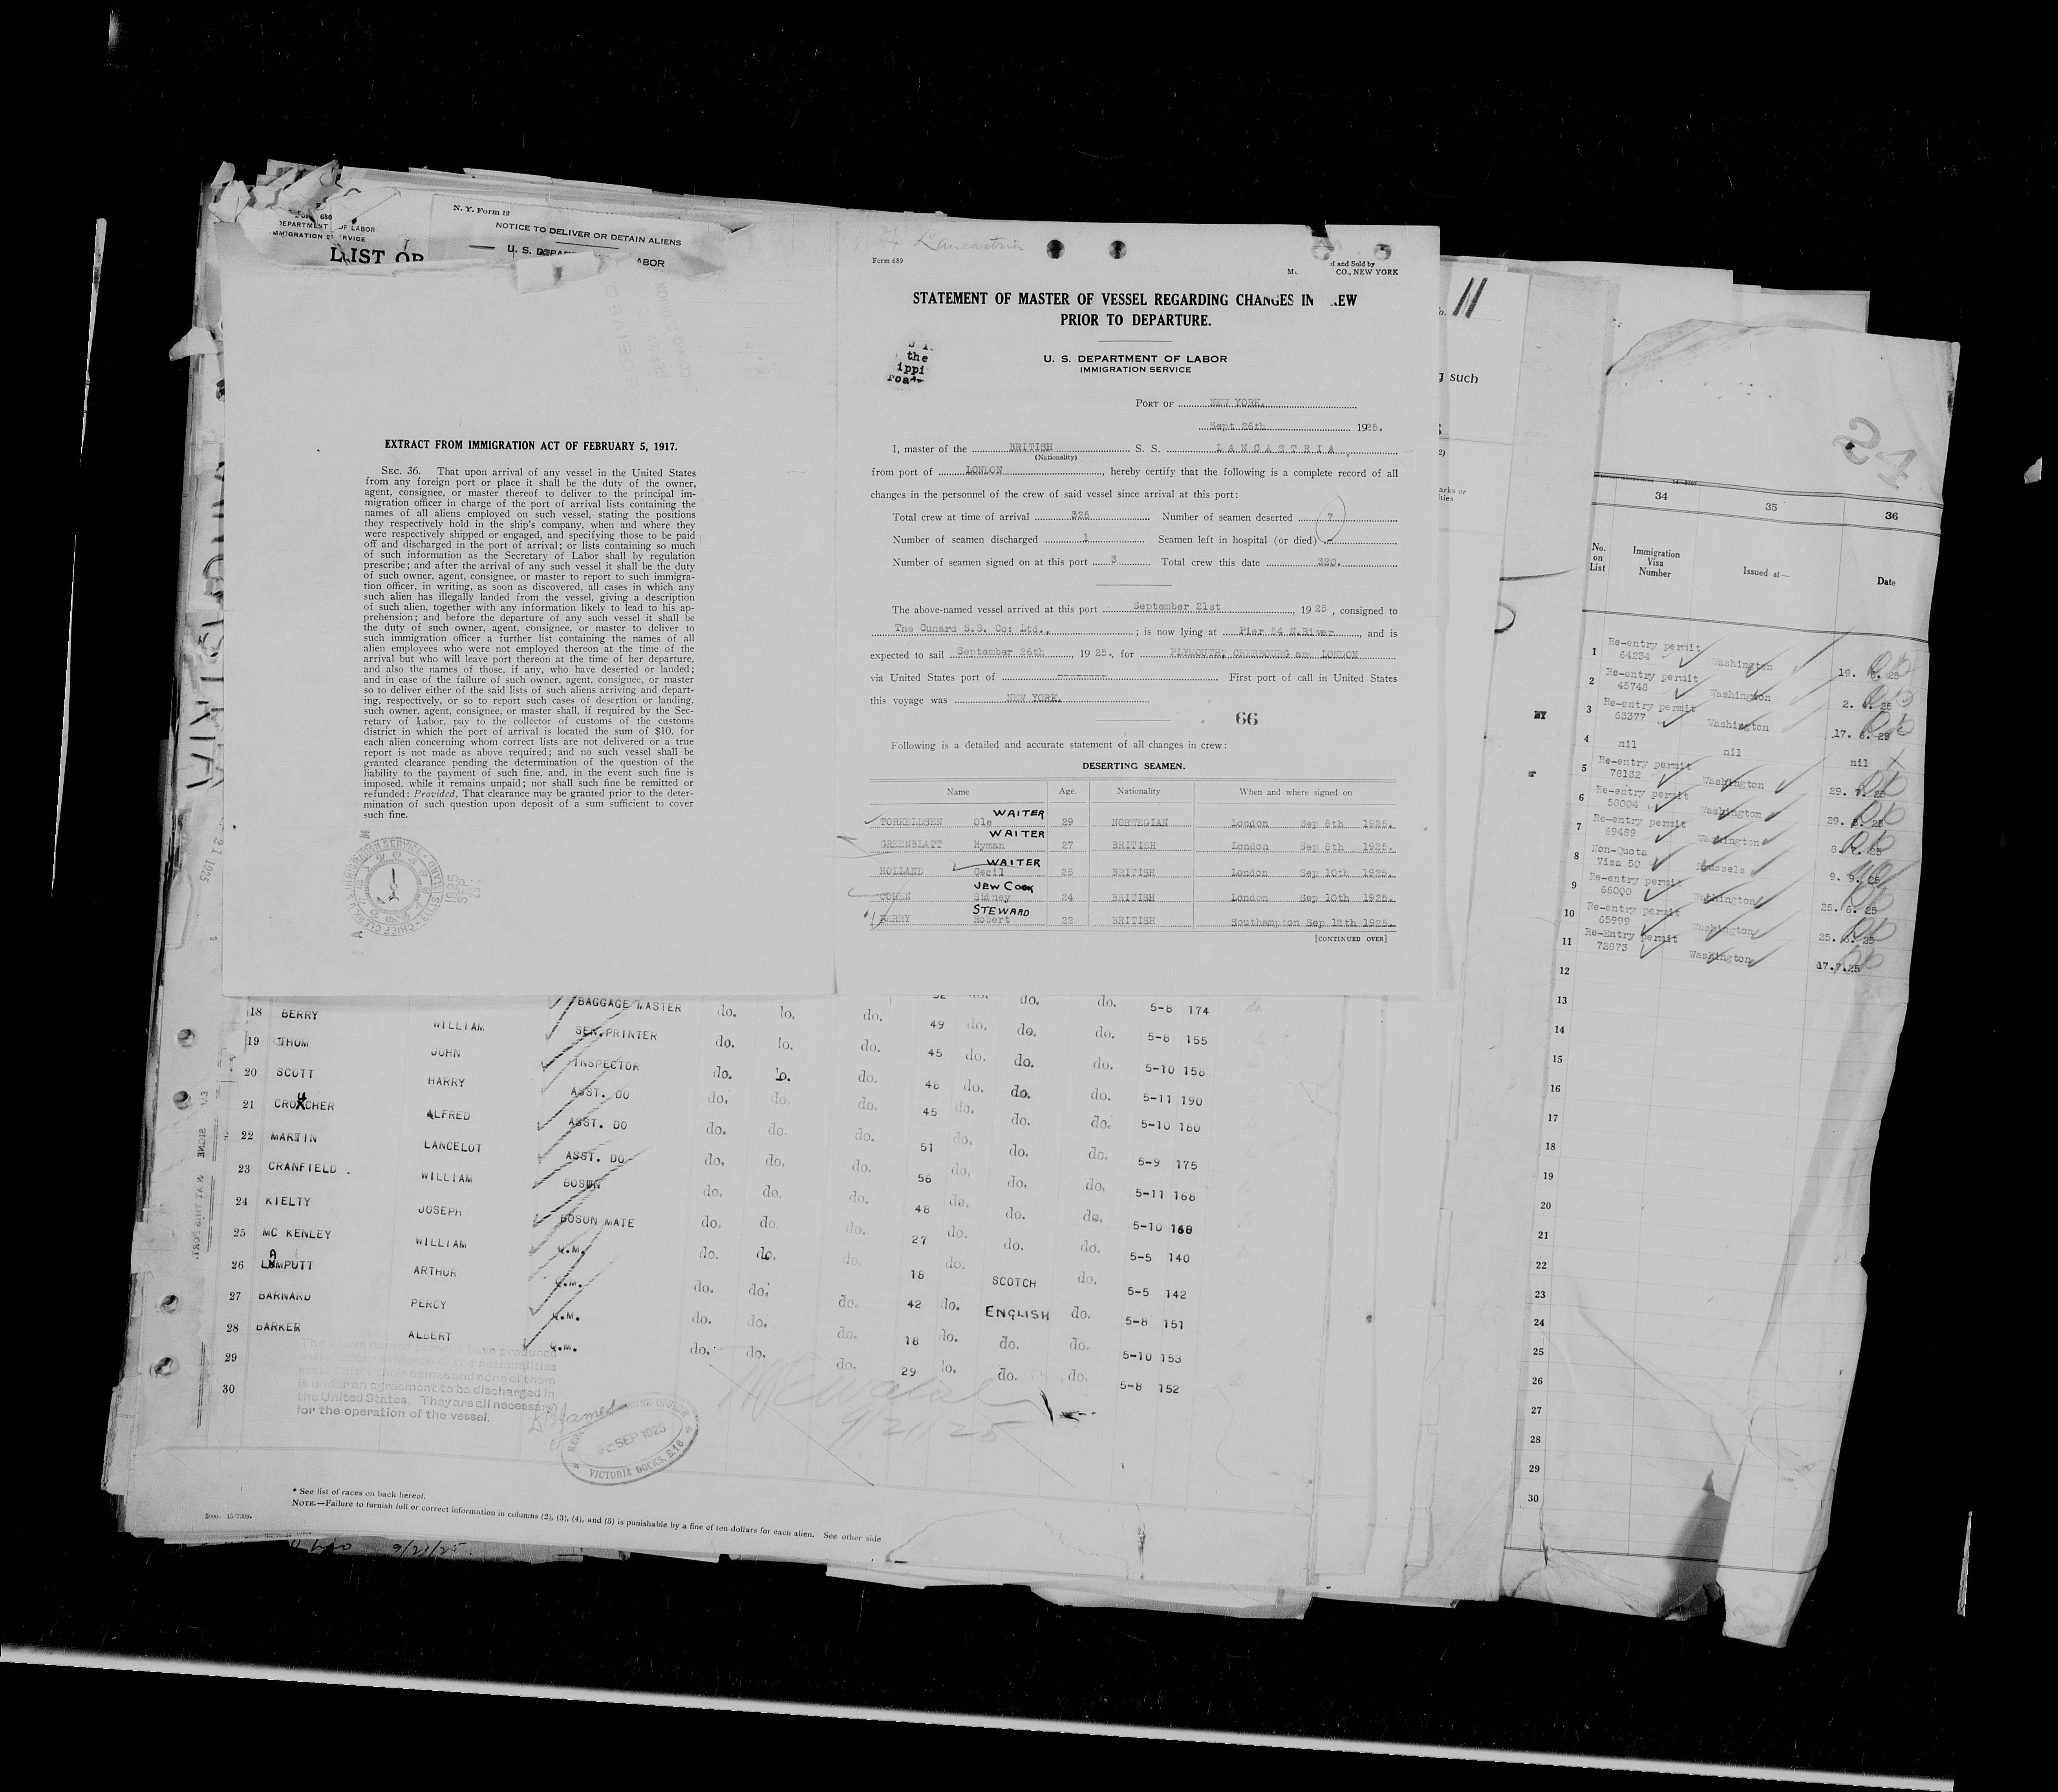 680
DEPARTMENT OF LABOR
IMMIGRATION SERVICE
LIST OR
N. Y. Form 12
NOTICE TO DELIVER OR DETAIN ALIENS
U. S. DEPA LABOR
EXTRACT FROM IMMIGRATION ACT OF FEBRUARY 5, 1917.
SEC. 36. That upon arrival of any vessel in the United States
from any foreign port or place it shall be the duty of the owner,
agent, consignee, or master thereof to deliver to the principal im-
migration officer in charge of the port of arrival lists containing the
names of all aliens employed on such vessel, stating the positions
they respectively hold in the ship's company, when and where they
were respectively shipped or engaged, and specifying those to be paid
off and discharged in the port of arrival; or lists containing so much
of such information as the Secretary of Labor shall by regulation
prescribe; and after the arrival of any such vessel it shall be the duty
of such owner, agent, consignee, or master to report to such immigra-
tion officer, in writing, as soon as discovered, all cases in which any
such alien has illegally landed from the vessel, giving a description
of such alien, together with any information likely to lead to his ap-
prehension; and before the departure of any such vessel it shall be
the duty of such owner, agent, consignee, or master to deliver to
such immigration officer a further list containing the names of all
alien employees who were not employed thereon at the time of the
arrival but who will leave port thereon at the time of her departure,
and also the names of those, if any, who have deserted or landed;
and in case of the failure of such owner, agent, consignee, or master
so to deliver either of the said lists of such aliens arriving and depart-
ing, respectively, or so to report such cases of desertion or landing,
such owner, agent, consignee, or master shall, if required by the Sec-
retary of Labor, pay to the collector of customs of the customs
district in which the port of arrival is located the sum of $10. for
each alien concerning whom correct lists are not delivered or a true
report is not made as above required; and no such vessel shall be
granted clearance pending the determination of the question of the
liability to the payment of such fine, and, in the event such fine is
imposed, while it remains unpaid; nor shall such fine be remitted or
refunded: Provided, That clearance may be granted prior to the deter-
mination of such question upon deposit of a sum sufficient to cover
such fine.
Lancastria
Form 689
d and Sold by
CO., NEW YORK
STATEMENT OF MASTER OF VESSEL REGARDING CHANGES IN EW
PRIOR TO DEPARTURE.
the
ippi
U. S. DEPARTMENT OF LABOR
IMMIGRATION SERVICE
PORT OF NEW YORK.
Sept 26th 1925.
I, master of the BRITISH S. S. LANCASTRIA
(Nationality)
from port of LONDON, hereby certify that the following is a complete record of all
changes in the personnel of the crew of said vessel since arrival at this port:
Total crew at time of arrival 325 Number of seamen deserted 7
Number of seamen discharged 1 Seamen left in hospital (or died) -
Number of seamen signed on at this port 3 Total crew this date 320.
The above-named vessel arrived at this port September 21st, 1925, consigned to
The Cunard S.S. Co: Ltd.,; is now lying at Pier 54 N.River, and is
expected to sail September 26th, 1925., for PLYMOUTH; CHERBOURG and LONDON
via United States port of -------- First port of call in United States
this voyage was NEW YORK.
66
Following is a detailed and accurate statement of all changes in crew:
DESERTING SEAMEN.
Name Age. Nationality When and where signed on
TORKELDSEN Ole WAITER 29 NORWEGIAN London Sep 8th 1925.
GREENBLATT Hyman WAITER 27 BRITISH London Sep 8th 1925.
HOLLAND Cecil WAITER 25 BRITISH London Sep 10th 1925.
COHEN Sidney JEW COOK 24 BRITISH London Sep 10th 1925.
BERRY Robert STEWARD 22 BRITISH Southampton Sep 12th 1925.
[CONTINUED OVER]
BAGGAGE MASTER do. do. 5-8 174
18 BERRY WILLIAM SER.PRINTER do. do. 49 do. do. do. 5-8 155
19 THOM JOHN INSPECTOR do. do. 45 do. do. do. 5-10 158
20 SCOTT HARRY ASST. DO do. do. 46 do. do. do. 5-11 190
21 CROUCHER ALFRED ASST. DO do. do. do. 45 do. do. do. 5-10 180
22 MARTIN LANCELOT ASST. DO do. do. do. 51 do. do. do. 5-9 175
23 CRANFIELD. WILLIAM BOSUN do. do. do. 56 do. do. do. 5-11 168
24 KIELTY JOSEPH BOSUN MATE do. do. do. 48 do. do. do. 5-10 168
25 MC KENLEY WILLIAM Q.M. do. do. do. 27 do. do. do. 5-5 140
26 LAMPUTT ARTHUR Q.M. do. do. do. 18 do. SCOTCH do. 5-5 142
27 BARNARD PERCY Q.M. do. do. do. 42 do. ENGLISH do. 5-8 151
28 BARKER ALBERT Q.M. do. do. do. 18 do. do. do. 5-10 153
29 do. 29 do. do. do. 5-8 152
30
The above named persons have produced
satisfactory evidence of the nationalities
stated after their names and none of them
is under an agreement to be discharged in
the United States. They are all necessary
for the operation of the vessel.
SEP 1925
VICTORIA DOCKS, E.16
9/21/25
* See list of races on back hereof.
NOTE.—Failure to furnish full or correct information in columns (2), (3), (4), and (5) is punishable by a fine of ten dollars for each alien. See other side
9/21/25
11
g such
arks or
24
34 35 36
No. on List Immigration Visa Number Issued at— Date
1 Re-entry permit 64234 Washington 19. 6. 25
2 Re-entry permit 45748 Washington 2. 4. 25
3 Re-entry permit 63377 Washington 17. 6. 25
4 nil nil nil
5 Re-entry permit 78132 Washington 29. 7. 25
6 Re-entry permit 58004 Washington 29. 5. 25
7 Re-entry permit 69489 Washington 8. 7. 25
8 Non-Quota Visa 50 Brussels 9. 9. 25
9 Re-entry permit 66000 Washington 25. 6. 25
10 Re-entry permit 65999 Washington 25. 6. 25
11 Re-Entry permit 72873 Washington 17.7.25
12
13
14
15
16
17
18
19
20
21
22
23
24
25
26
27
28
29
30